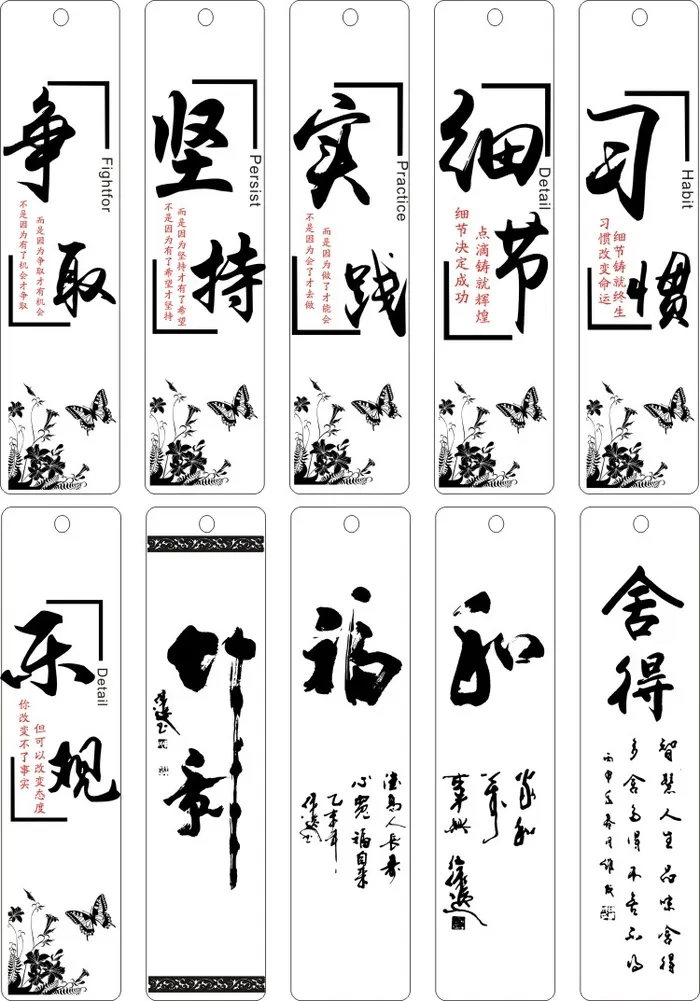 争取
Fightfor
不是因为有了机会才争取
而是因为争取才有机会
坚持
Persist
不是因为有了希望才坚持
而是因为坚持才有了希望
实践
Practice
不是因为会了才去做
而是因为做了才能会
细节
Detail
细节决定成功
点滴铸就辉煌
习惯
Habit
习惯改变命运
细节铸就终生
乐观
Detail
你改变不了事实
但可以改变态度
竹
福
德高人长寿
心宽福自来
和
家和
万
事兴
舍得
智慧人生品味舍得
多舍多得不舍不得
丙申